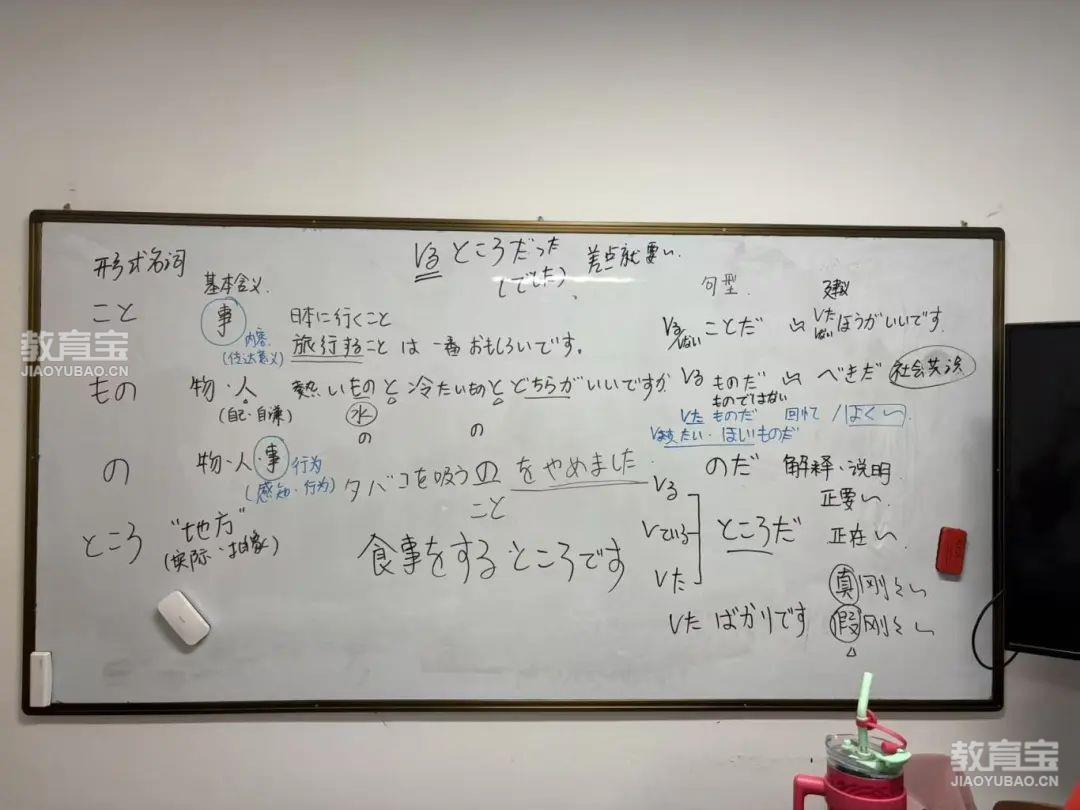 教育宝
JIAOYUBAO.CN
形式名词
Vる ところだった 差点就要〜
(でした)、
基本含义.
句型.
建议
こと
事
内容.
(传达意义)
日本に行くこと
旅行することは一番おもしろいです。
Vる
ない
ことだ
Vた
ない
ほうがいいです.
教育宝
JIAOYUBAO.CN
もの
物・人
(自己・自谦)
熱いものと冷たいものとどちらがいいですか
水
の
の
Vる ものだ
ものではない
べきだ
社会共识
Vた ものだ 回忆 / よく〜
Vますたい・ほしいものだ
の
物・人・事 行为
(感知・行为)
タバコを吸うのをやめました.
こと
のだ 解释・说明
ところ
"地方"
(实际・抽象)
食事をするところです
Vる
Vている
Vた
ところだ
正要〜
正在〜
真 刚刚〜
Vた ばかりです
假 刚刚〜
教育宝
JIAOYUBAO.CN